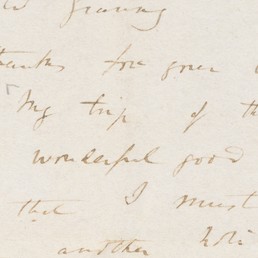 thanks for your
My trip of th
wonderful good
that I must
another holi